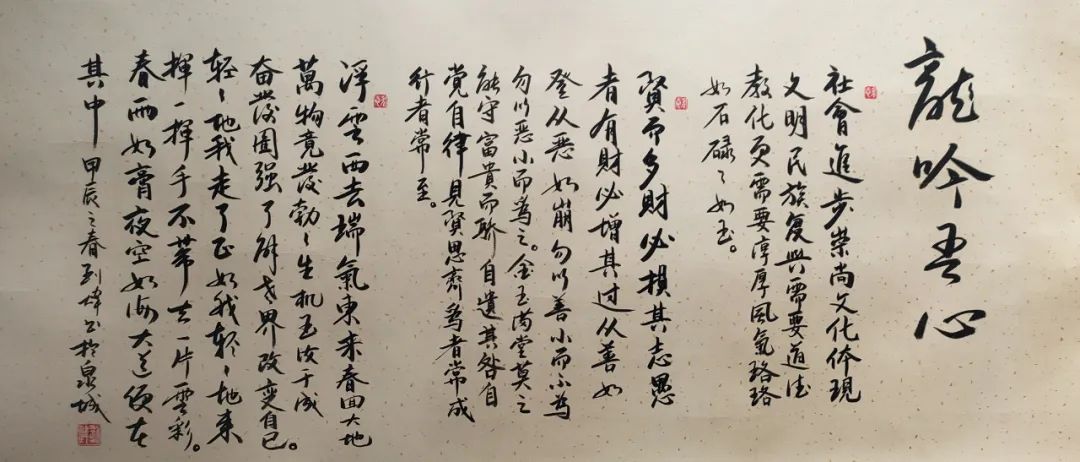 龍吟吾心
社會進步崇尚文化体現
文明民族复興需要道德
教化更需要淳厚風氣珞珞
如石碌々如玉。
賢而多財必損其志愚
者有財必增其过从善如
登从恶如崩勿以善小而不為
勿以恶小而為之。金玉满堂莫之
能守富貴而骄自遺其咎自
覺自律見賢思齊為者常成
行者常至。
浮雲西去瑞氣東来春回大地
萬物竟發勃々生机玉汝于成
奋發圖强了解世界改变自己。
轻々地我走了正如我轻々地来
揮一揮手不带去一片雲彩。
春雨如膏夜空如海大道便在
其中 甲辰之春 到 书於泉城